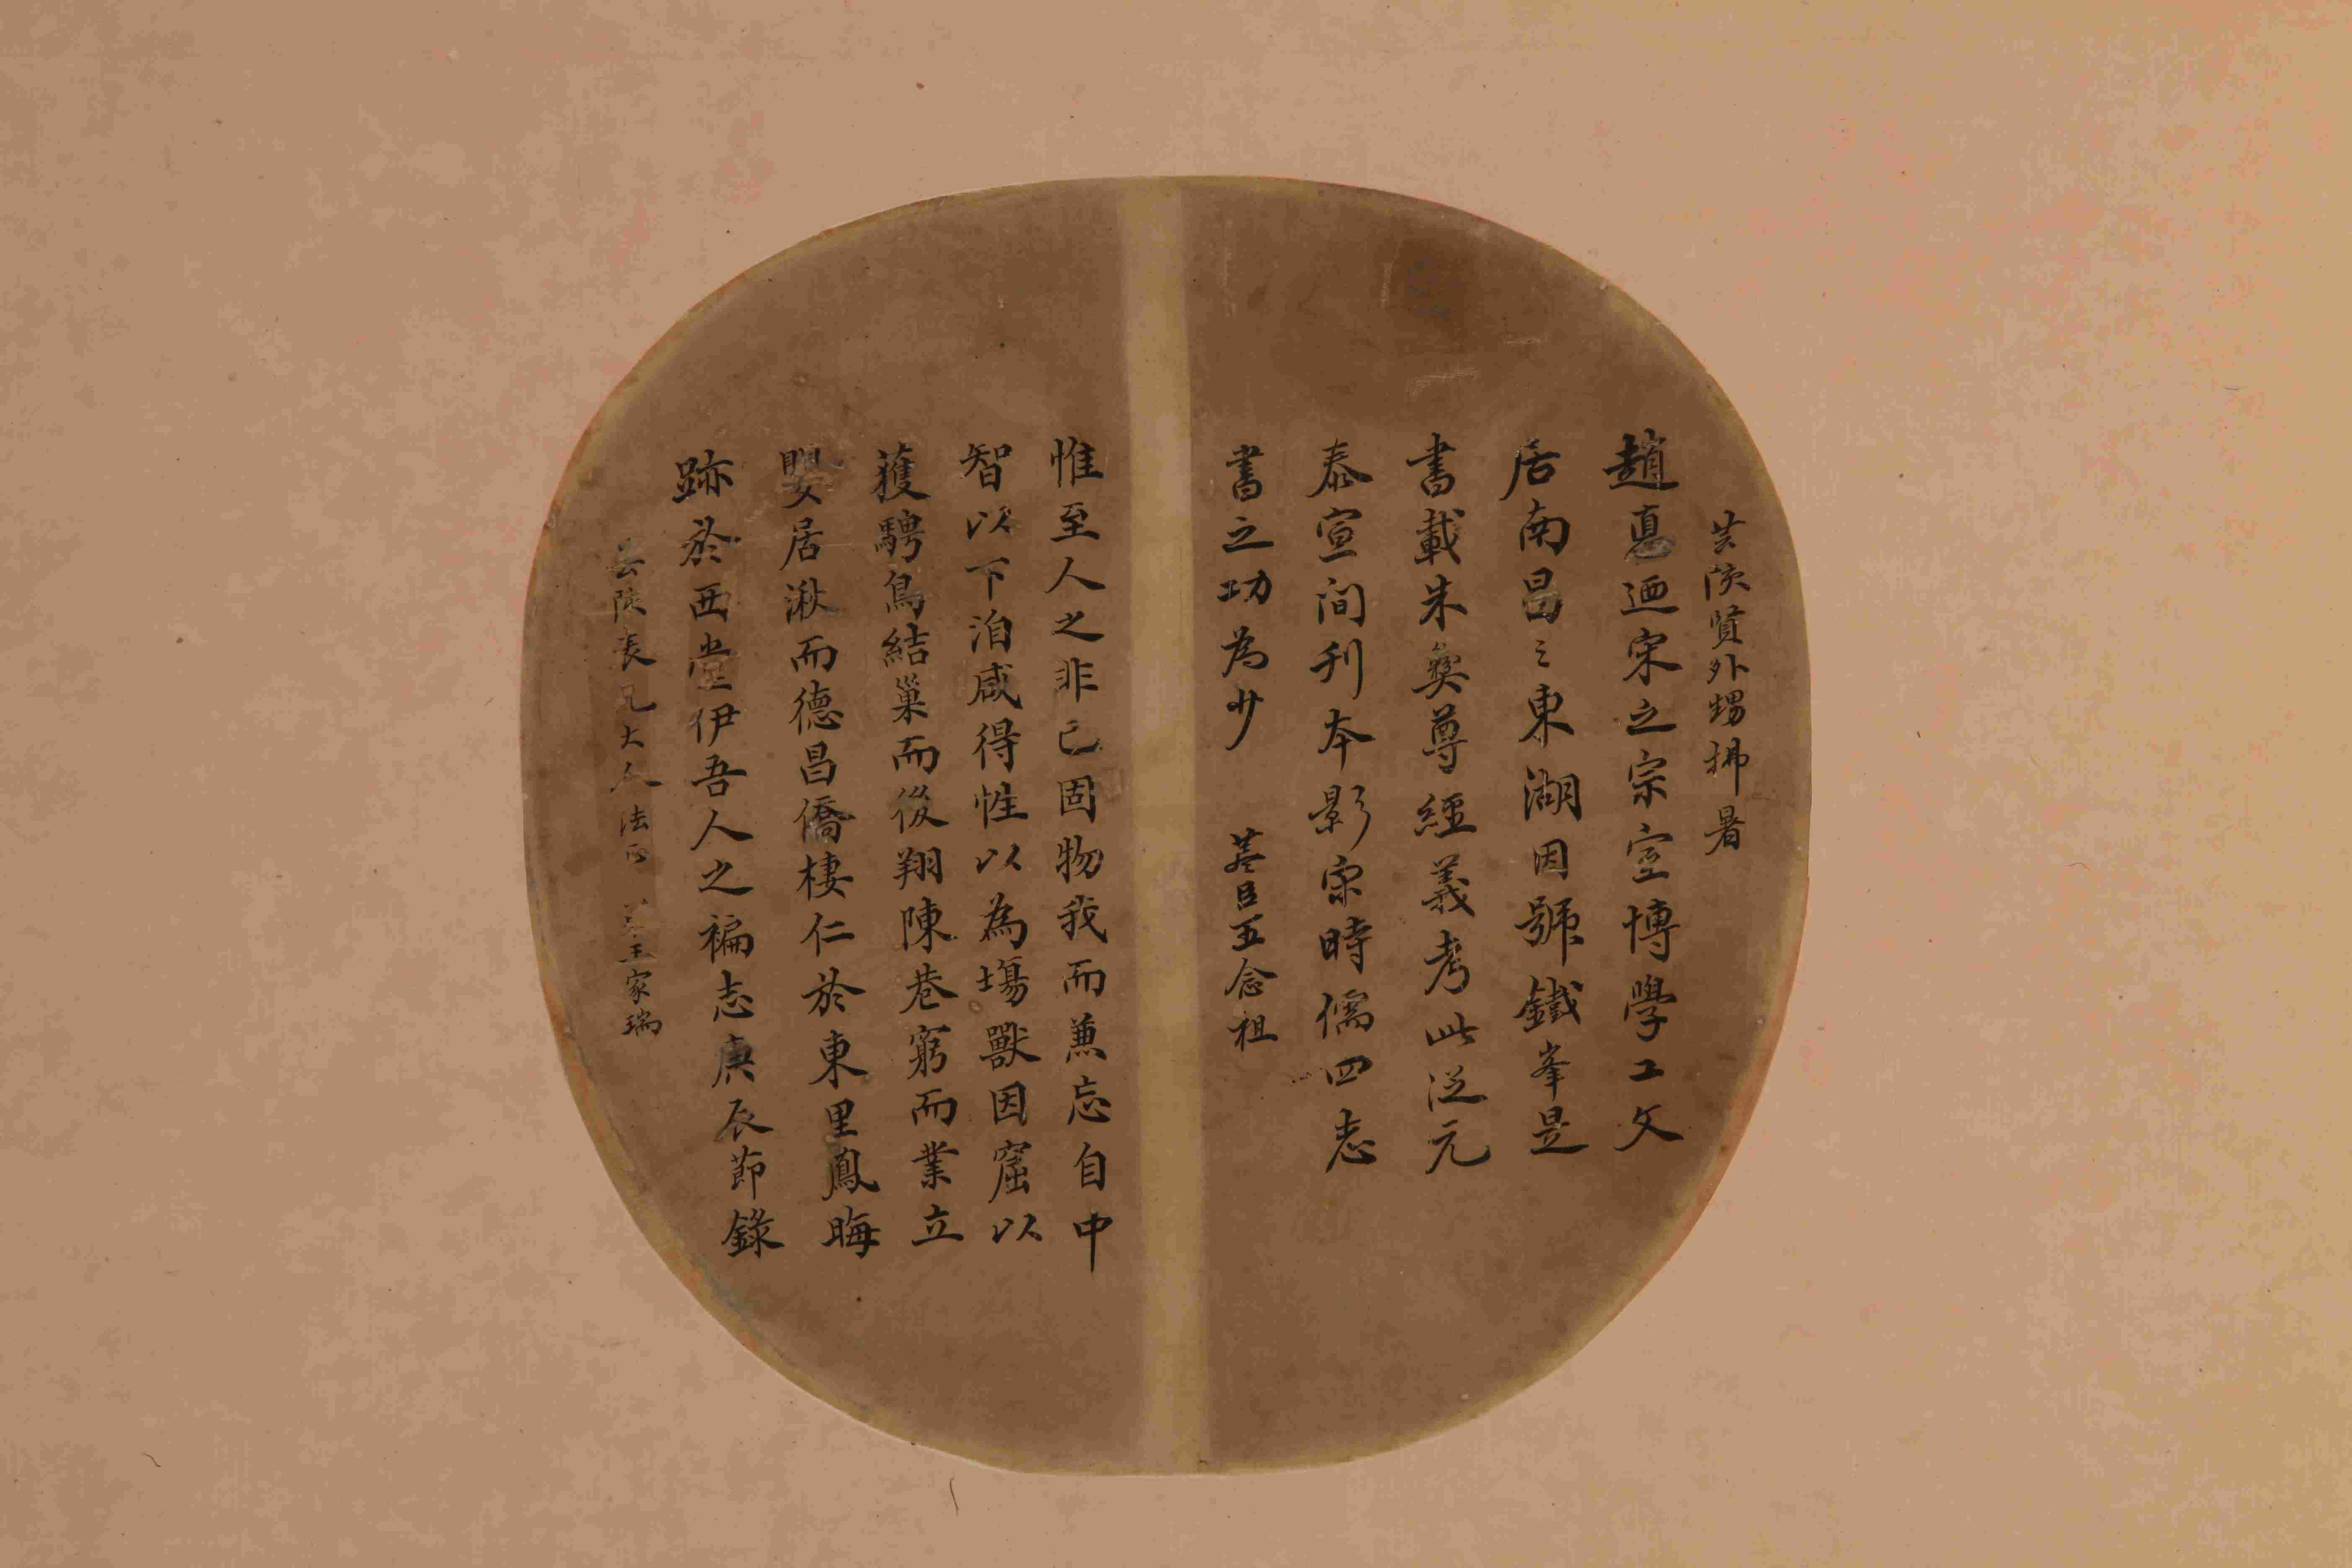 芸陔賢外甥拂暑
趙惪迺宋之宗室博學工文
居南昌之東湖因號鐵峯是
書載朱奠尊經義考此從元
泰宣间刊本影宋時儒四志
書之功為少 藎臣王念祖
惟至人之非己固物我而兼忘自中
智以下洎咸得性以為場獸因窟以
獲騁鳥結巢而後翔陳巷窮而業立
嬰居湫而德昌僑棲仁於東里鳳晦
跡於西堂伊吾人之褊志庚辰節錄
芸陔表兄大人法正 王家瑞